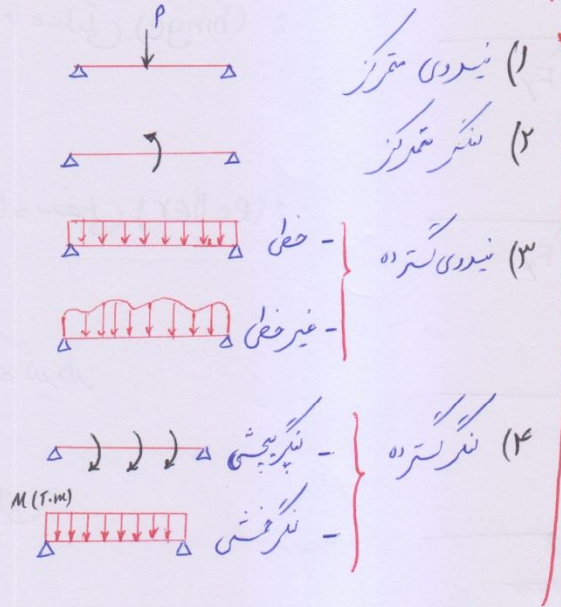 ۱) نیروی متمرکز
P
۲) لنگر متمرکز
۳) نیروی گسترده
- خطی
- غیر خطی
۴) لنگر گسترده
- لنگر پیچشی
- لنگر خمشی
M (T.m)